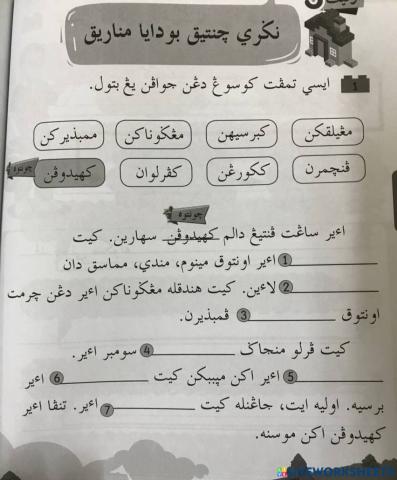 نݢري چنتيق بودايا مناريق
1 ايسي تمڤت كوسوڠ دڠن جواڤن يڠ بتول.
مڠيلقكن كبرسيهن مڠݢوناكن ممبذيركن
ڤنچمرن ككورڠن كڤرلوان كهيدوڤن
چونتوه
چونتوه
اءير ساڠت ڤنتيڠ دالم كهيدوڤن سهارين. كيت
1 اءير اونتوق مينوم، مندي، مماسق دان
2 لاءين. كيت هندقله مڠݢوناكن اءير دڠن چرمت
اونتوق 3 ڤمبذيرن.
كيت ڤرلو منجاݢ 4 سومبر اءير.
5 اءير اكن مڽببكن كيت 6 اءير
برسيه. اوليه ايت، جاڠنله كيت 7 اءير. تنڤا اءير
كهيدوڤن اكن موسنه.
LIVEWORKSHEETS